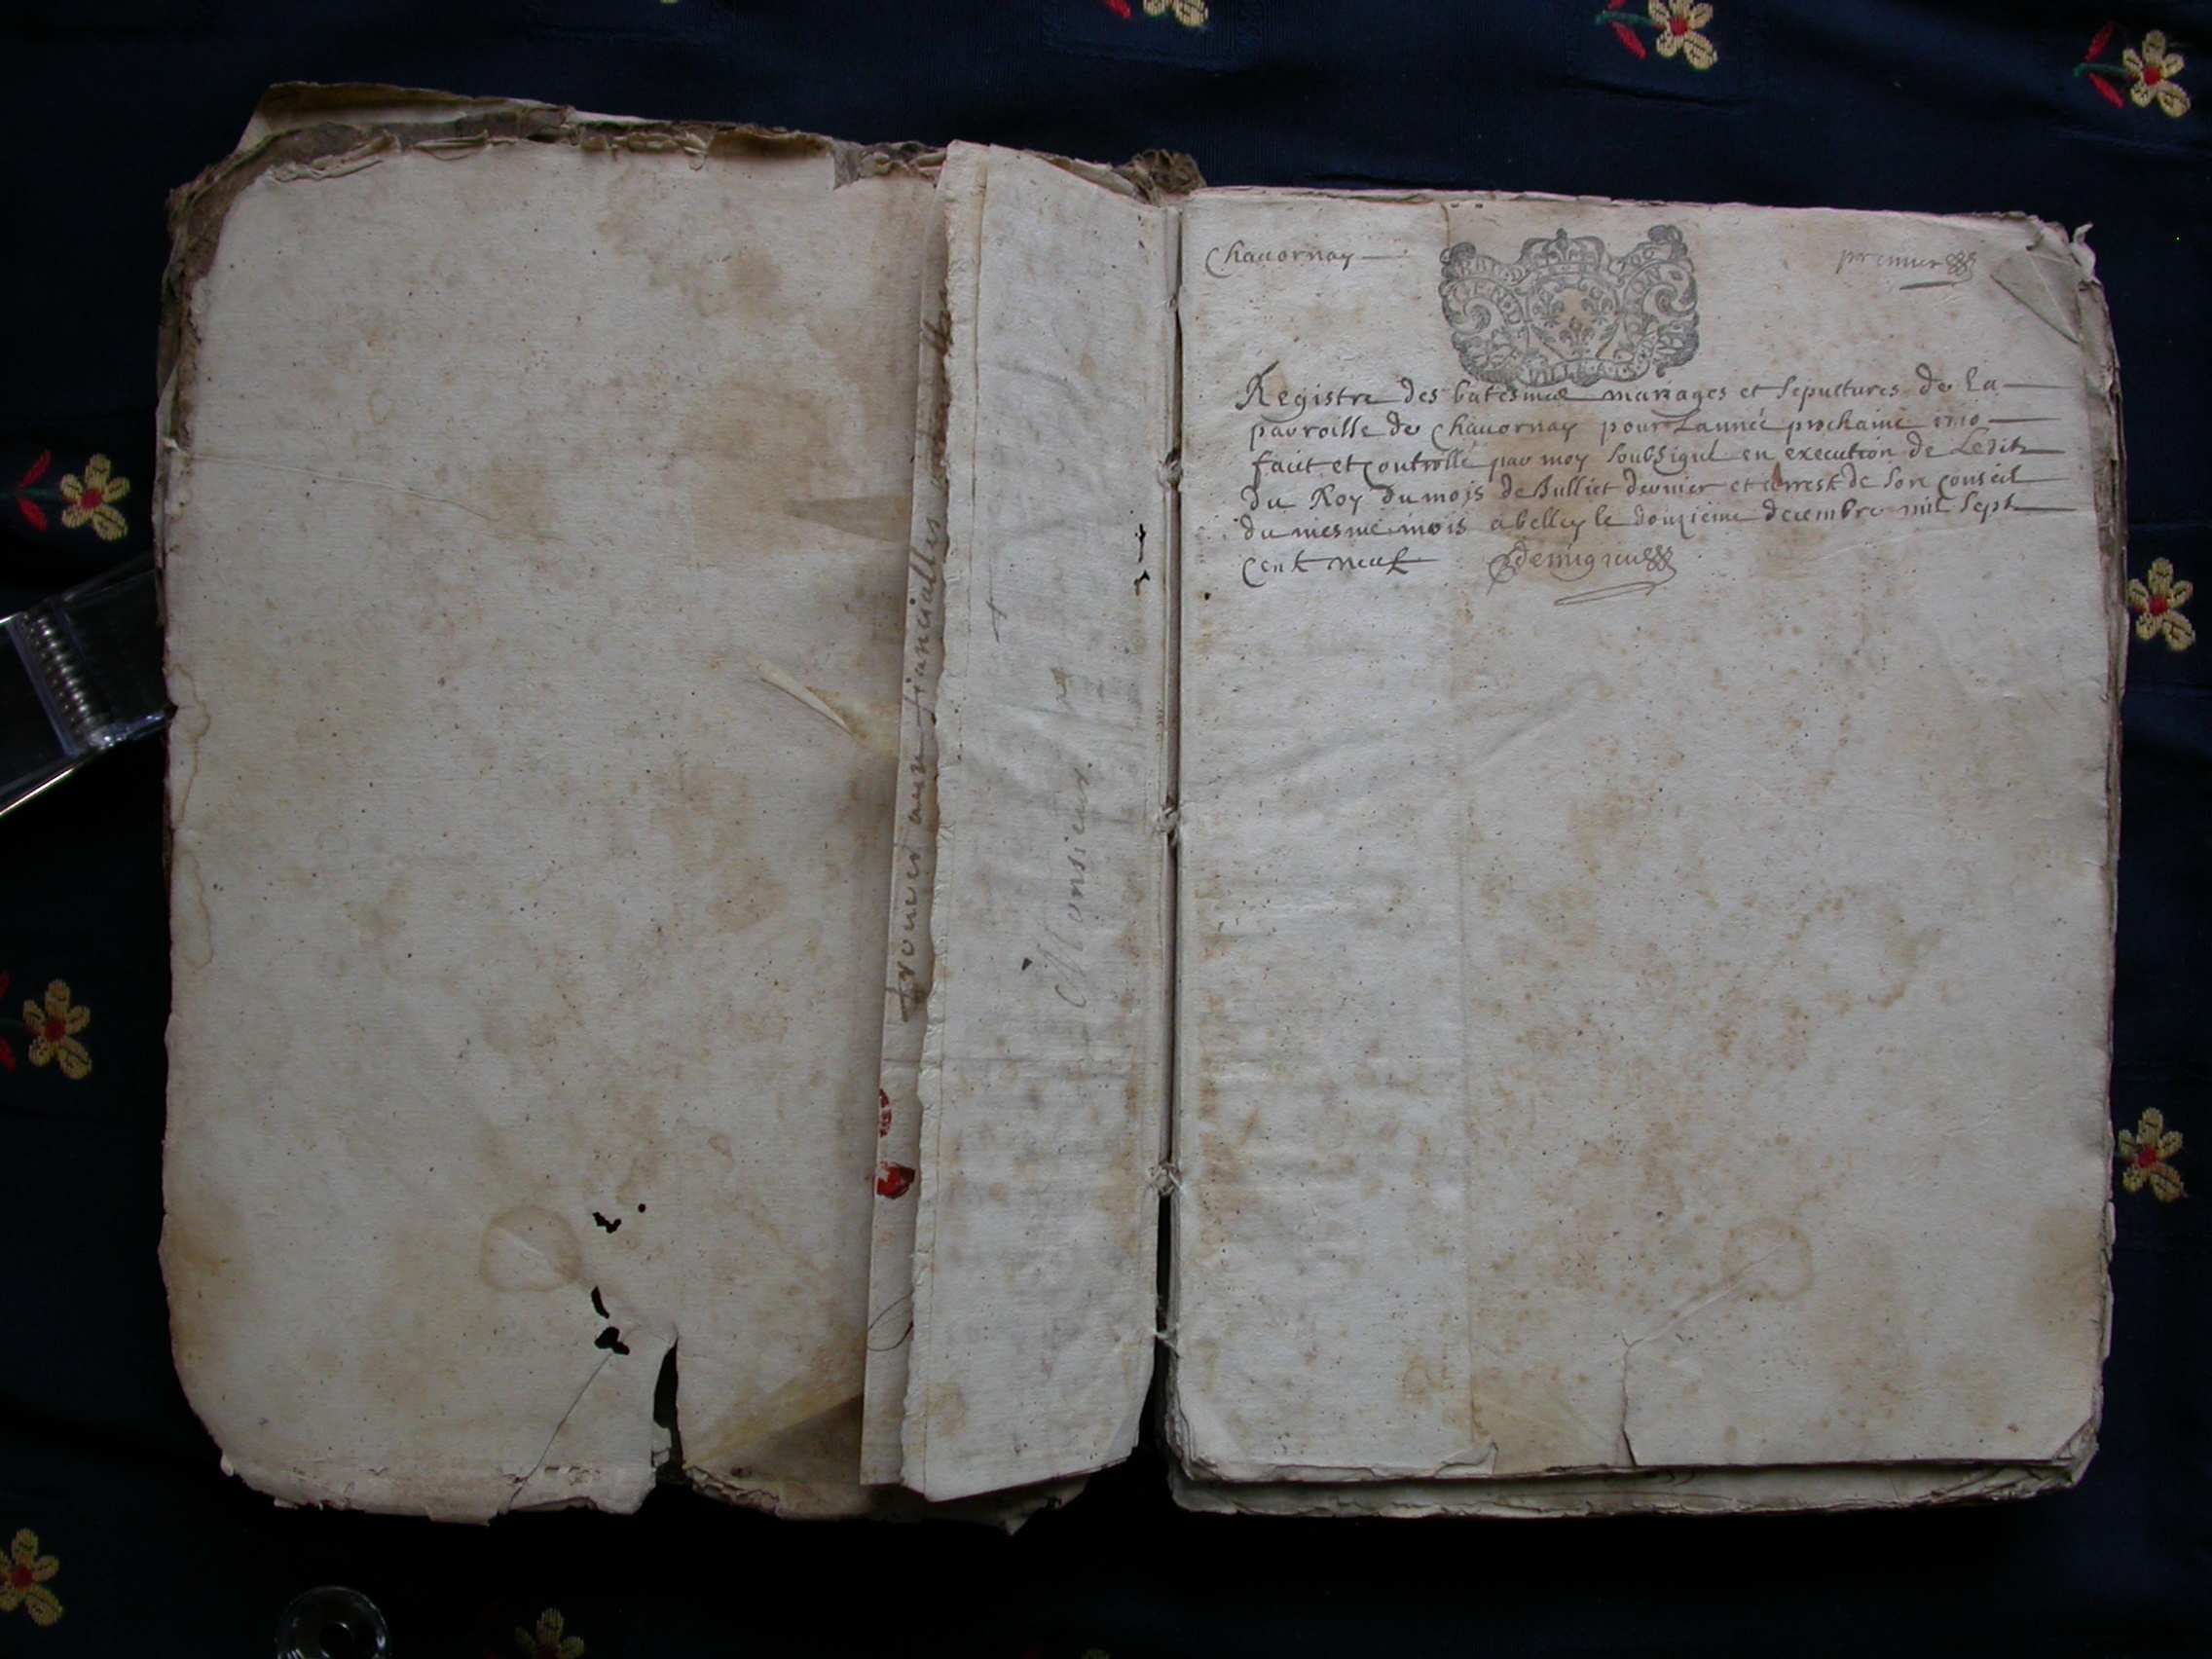 trouver aux fiancialles
Monsieur.
Chavornay
premier
GEN D
Registre des batesmes mariages et sepultures de la
parroisse de Chavornay pour Lannée prochaine 1710
faict et Controllé par moy soubsigné en execution de Ledit
du Roy du mois de Julliet dernier et arrest de son Conseil
du mesme mois a belley le douzieme decembre mil sept
Cent neuf